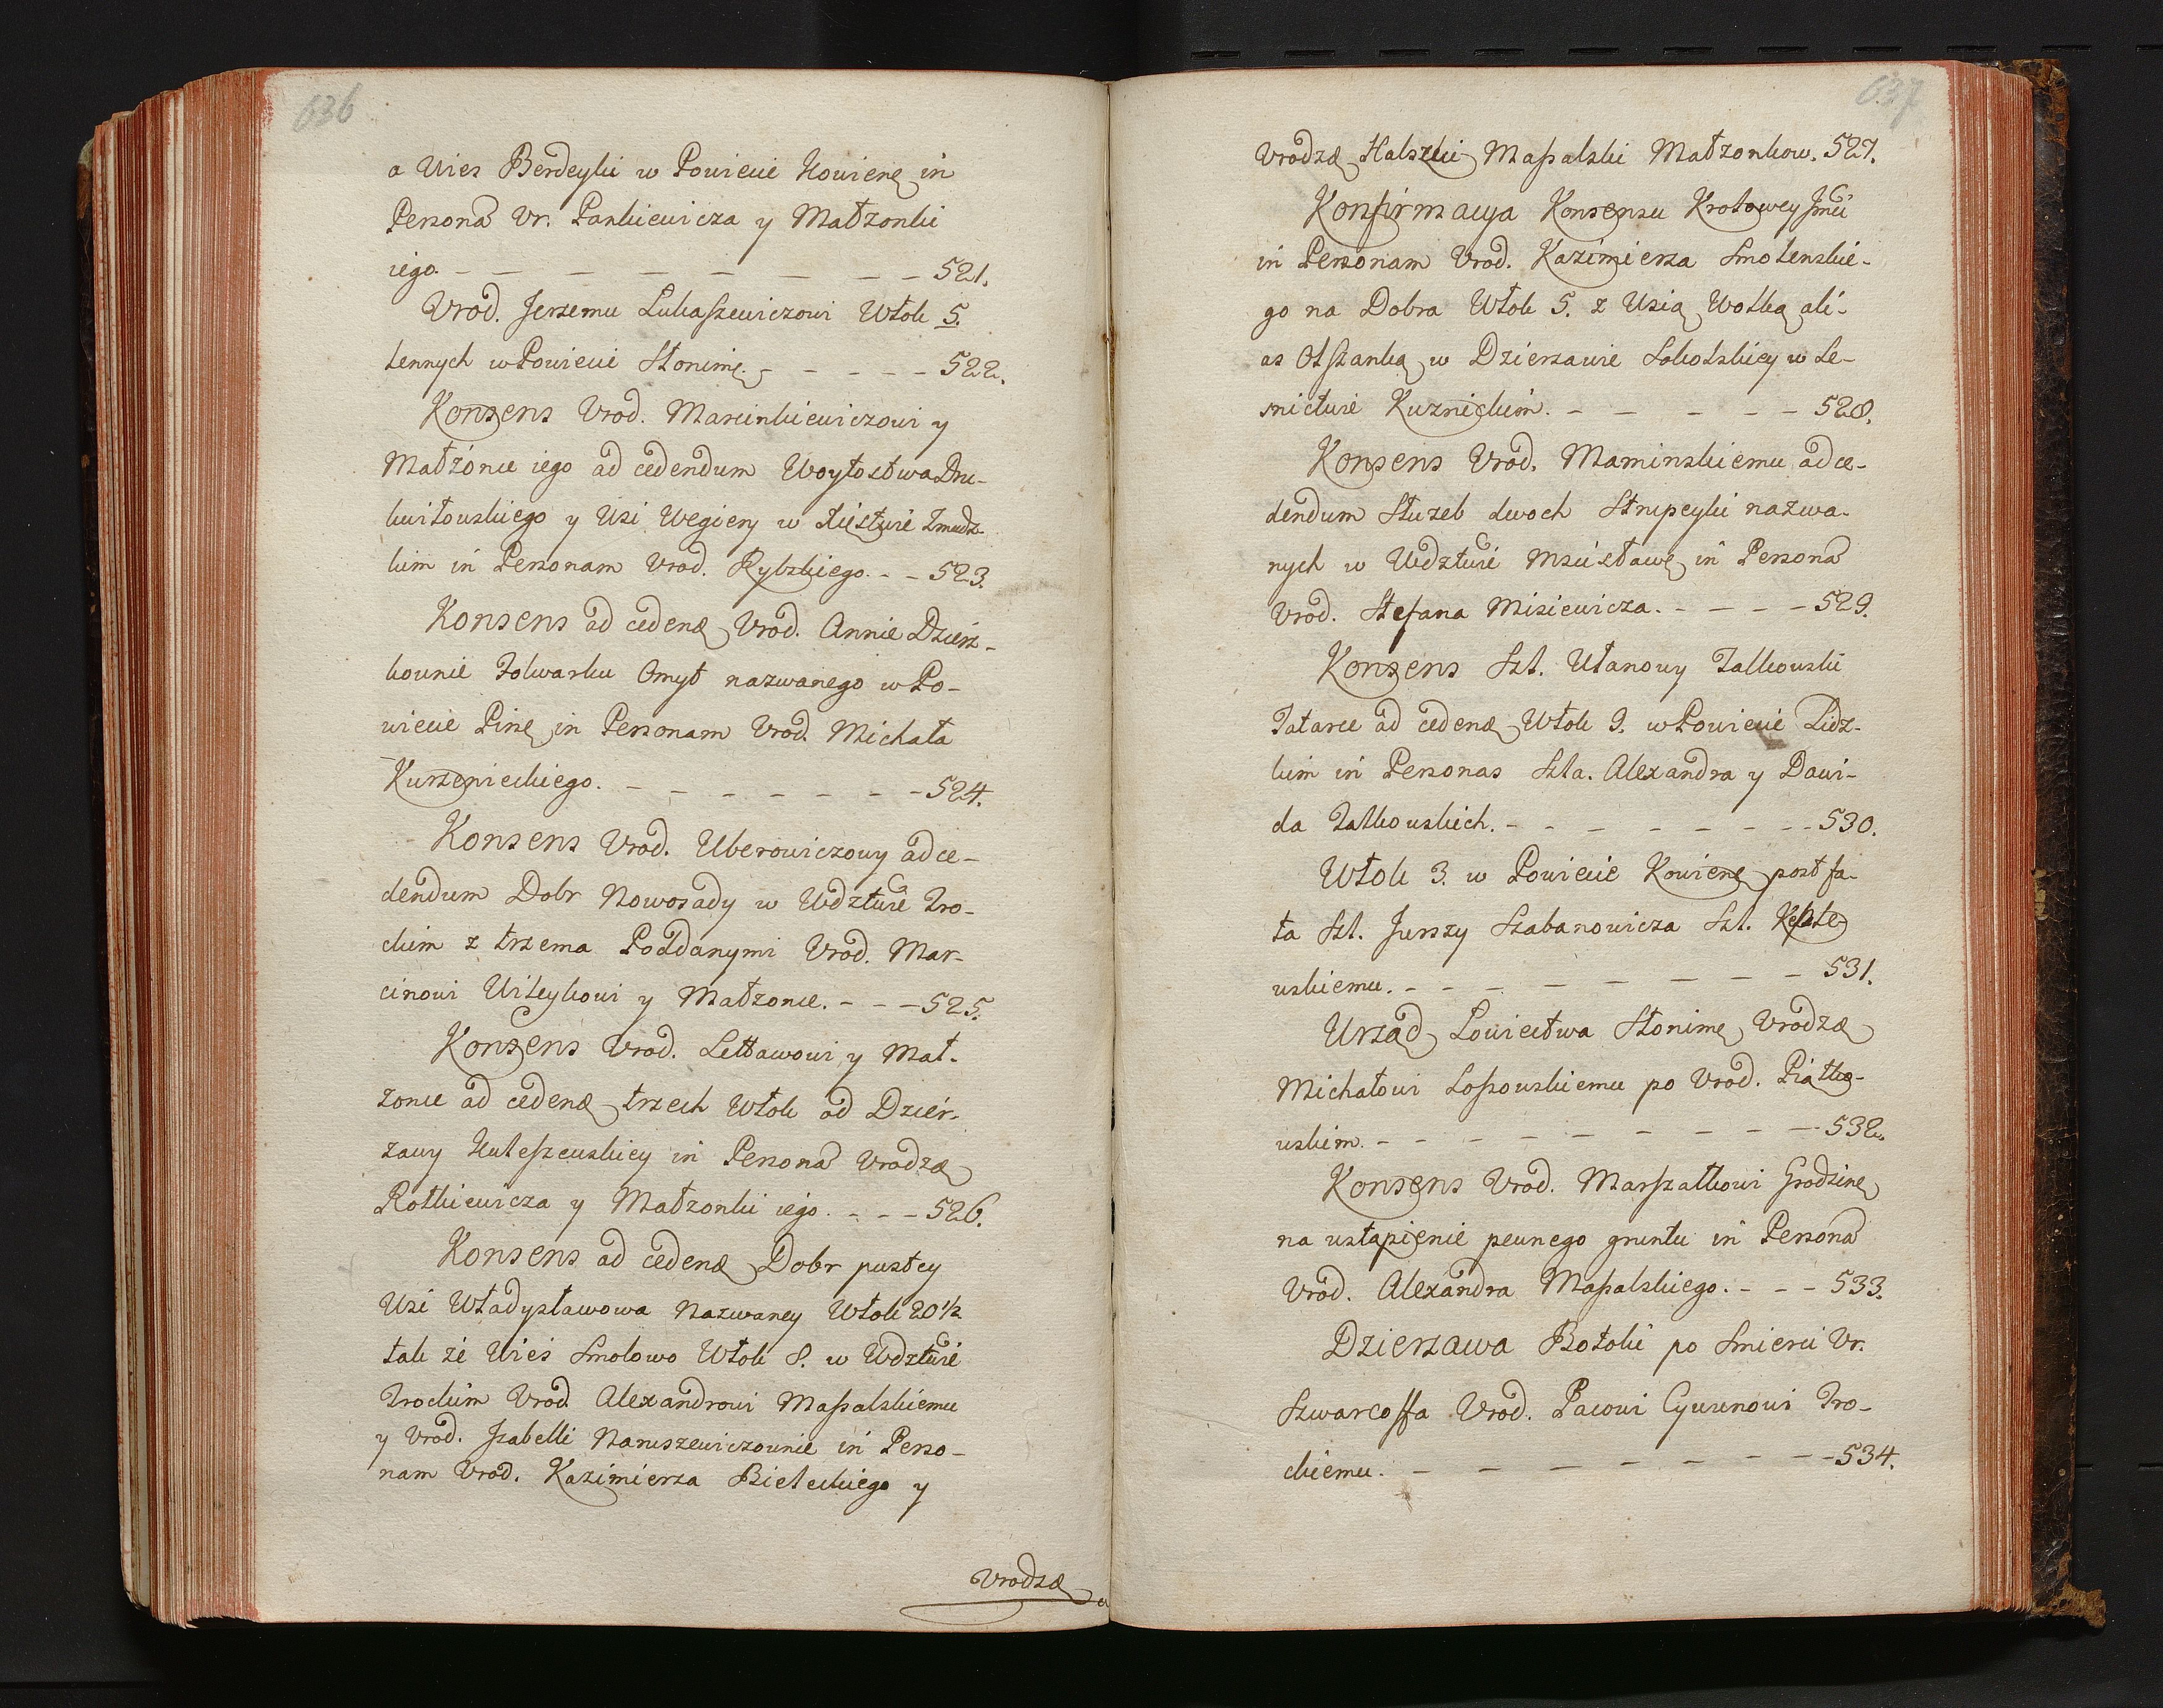 636
a Wies Berdeyki w Powiecie Kowienę in
Persona Vr. Pankiewicza y Małzonki
iego. - - - - - - - - 521.
Vrod. Jerzemu Lukaszewiczowi Włok 5.
lennych w Powiecie Słonimę. - - - - - 522.
Konsens Vrod. Marcinkiewiczowi y
Małżonce iego ad cedendum Woytostwa Dru-
kuitowskiego y Wsi Wegiery w Xięstwie Zmudz-
kim in Personam Vrod. Rybskiego. - - 523.
Konsens ad cedenđ Vrod. Annie Dzierz-
kownie Folwarku Omyt nazwanego w Po-
wiecie Pinę in Personam Vrod. Michała
Kurzenieckiego. - - - - - - - 524.
Konsens Vrod. Uberowiczowy ad ce-
dendum Dobr Nowosady w Wdztwie Tro-
ckim z trzema Poddanymi Vrod. Mar-
cinowi Witeykowi y Małzonce. - - - 525.
Konsens Vrod. Lettawowi y Mał-
zonce ad cedenđ trzech Włok od Dzier-
zawy Huteszewskiey in Persona Vrodzđ
Rotkiewicza y Małzonki iego. - - - 526.
Konsens ad cedenđ Dobr pustey
Wsi Władysławowa Nazwaney Włok 20 1/2
tak że Wieś Smolowo Włok 8. w Wdztwie
Trockim Vrod. Alexandrowi Massalskiemu
y Vrod. Jzabelli Naruszewiczownie in Perso-
nam Vrod. Kazimierza Bieleckiego y
Vrodzđ
637
Vrodzđ Halszki Massalski Małzonkow. 527.
Konfirmacya Konsensu Krolowey Jmci
in Personam Vrod. Kazimierza Smolenskie-
go na Dobra Włok 5. z Wsią Wolką ali-
as Olszanką w Dzierzawie Sokolskiey w Le-
snictwie Kuznickim. - - - - - 528.
Konsens Vrod. Maminskiemu ad ce-
dendum Słuzeb dwoch Strupeyki nazwa-
nych w Wdztwie Mscisławę in Persona
Vrod. Stefana Misiewicza. - - - - 529.
Konsens Szl. Ułanowy Talkowski
Tatarce ad cedenđ Włok 9. w Powiecie Lidz-
kim in Personas Szla. Alexandra y Dawi-
da Talkowskich. - - - - - - - 530.
Włok 3. w Powiecie Kowienę post fa-
ta Szl. Jurszy Szabanowicza Szl.
wskiemu. - - - - - - - 531.
Urząd Lowiectwa Słonimę Vrodzđ
Michałowi Lossowskiemu po Vrod. Piątko-
wskim. - - - - - - - - 532.
Konsens Vrod. Marszałkowi Grodzinę
na ustąpienie pewnego gruntu in Persona
Vrod. Alexandra Massalskiego. - - - 533.
Dzierzawa Botoki po Smierci Vr.
Szwarcoffa Vrod. Pacowi Cywunowi Tro-
ckiemu. - - - - - - - - 534.